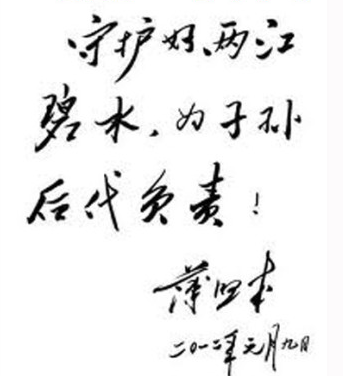 守护好两江
碧水，为子孙
后代负责！
二〇一二年元月九日